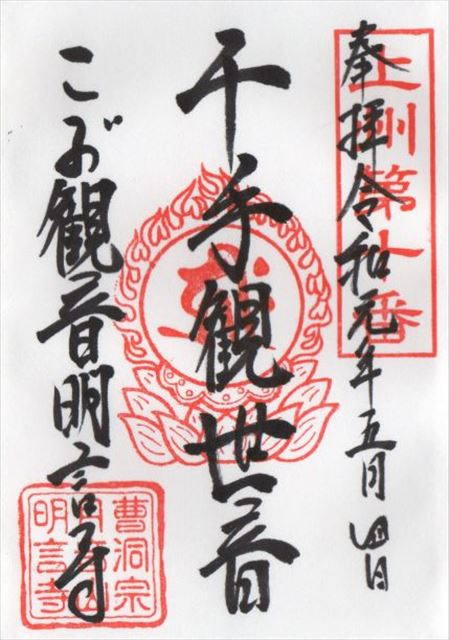 奉拝 令和元年五月四日
上州第十番
千手観世音
こがの観音 明言寺
曹洞宗
明言寺